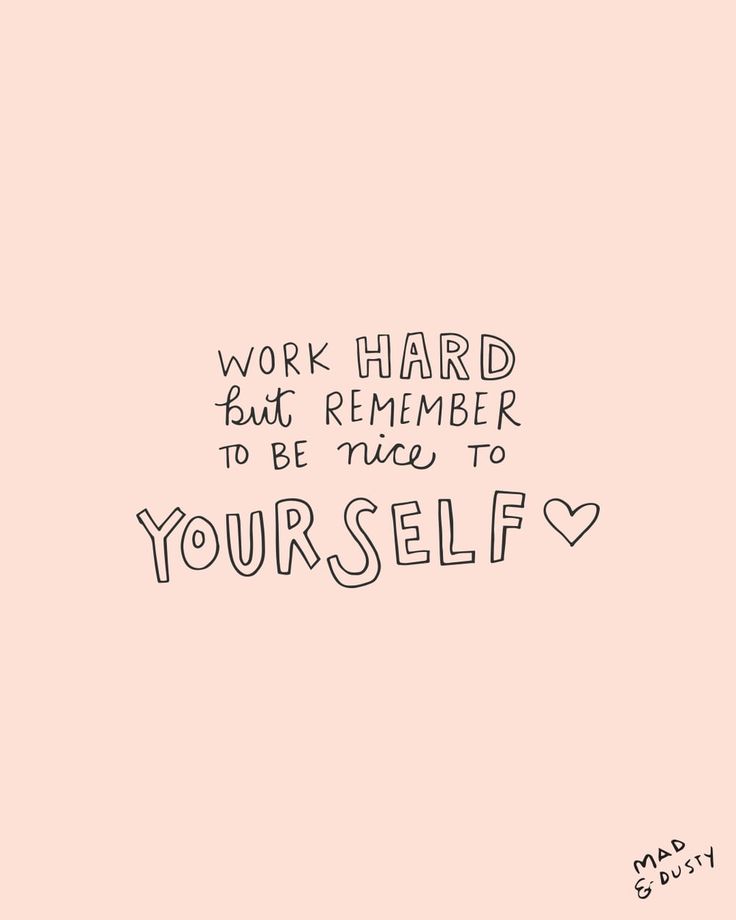 WORK HARD
but REMEMBER
TO BE nice TO
YOURSELF ♡
MAD
& DUSTY